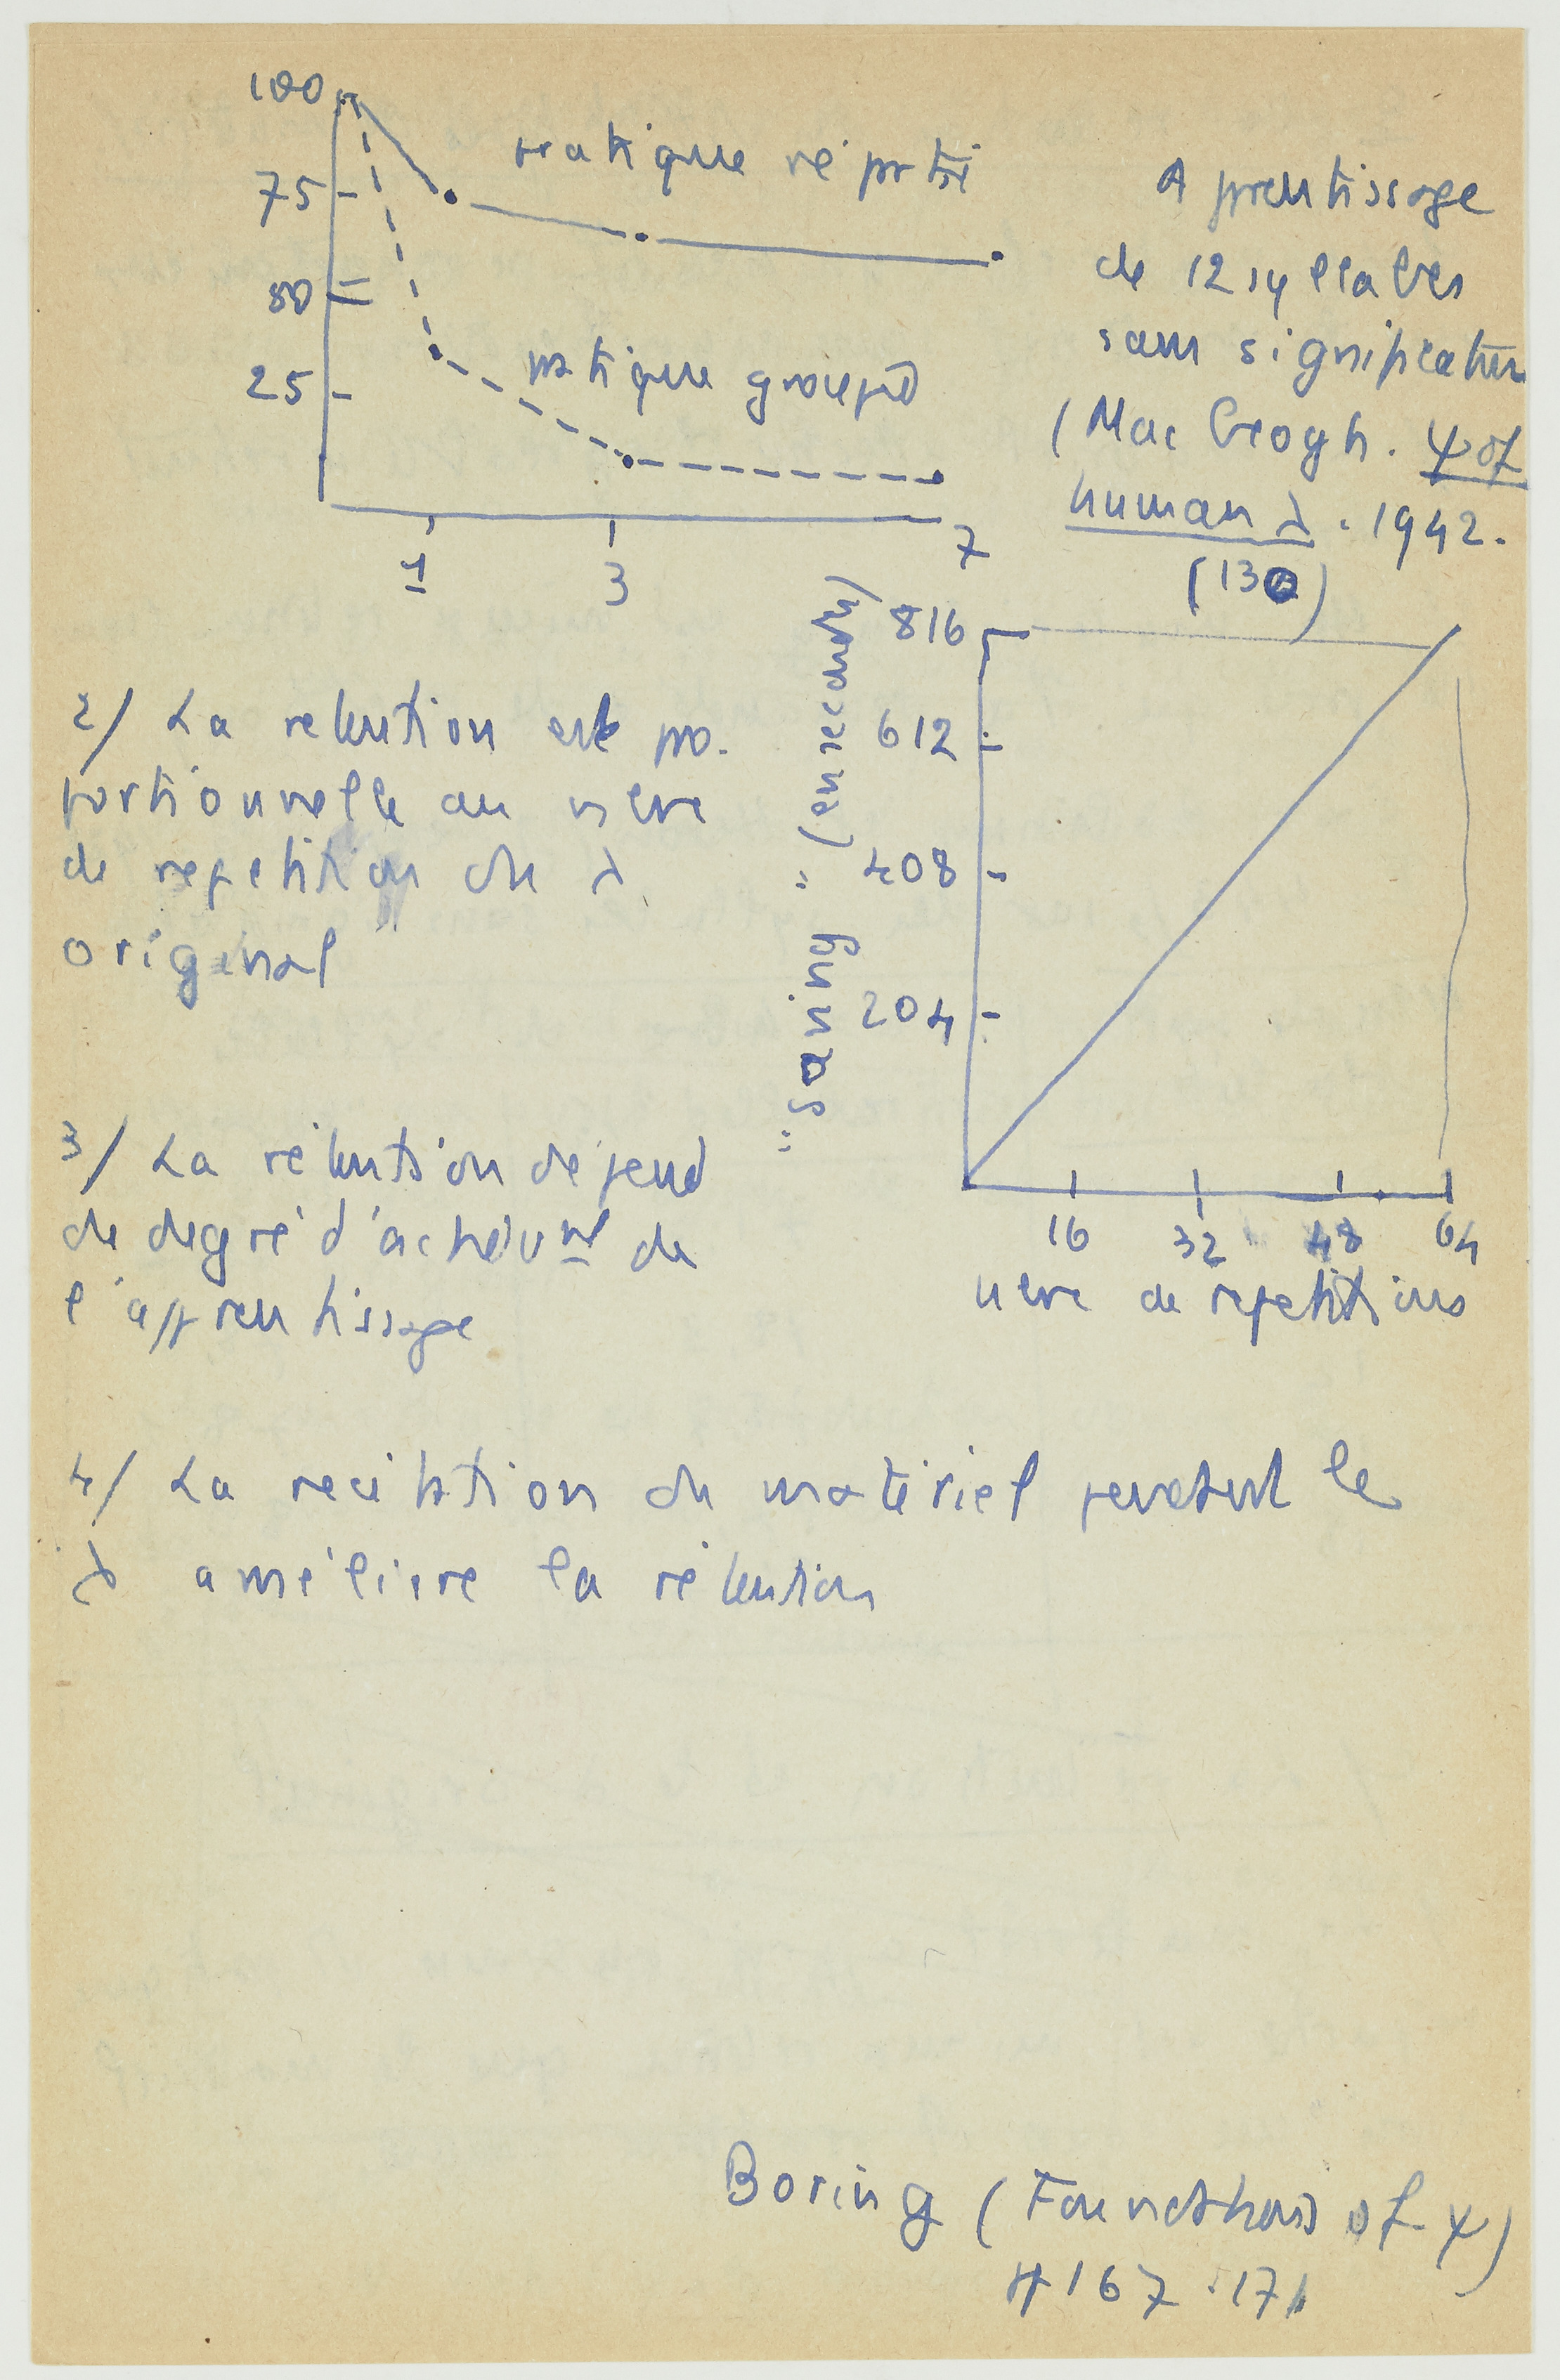 100
75
50
25
pratique réparti
pratique groupé
1
3
7
Apprentissage
de 12 syllabes
sans signification
(Mac Geogh. ψ of
human λ. 1942.
(130)
2/ La rétention est pro-
portionnelle au nbre
de repetition du λ
original
"saving" (en secondes)
816
612
408
204
16
32
48
64
nbre de repetitions
3/ La rétention dépend
du degré d'achèvnt de
l'apprentissage
4/ La recitation du matériel pendant le
λ améliore la rétention
Boring (Foundations of ψ)
pp 167-171